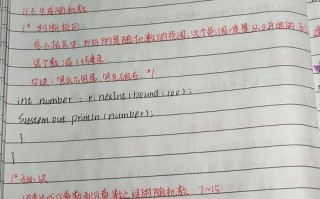 1° 判断技巧:
在小括号中,书写的是随机数的范围,这个范围一定是从0开始的 到
这个数 减1结束
口诀: 包头不包尾, 包左不包右. */
int number = r.nextInt(bound:100);
System.out.println(number);
}
}
7~15